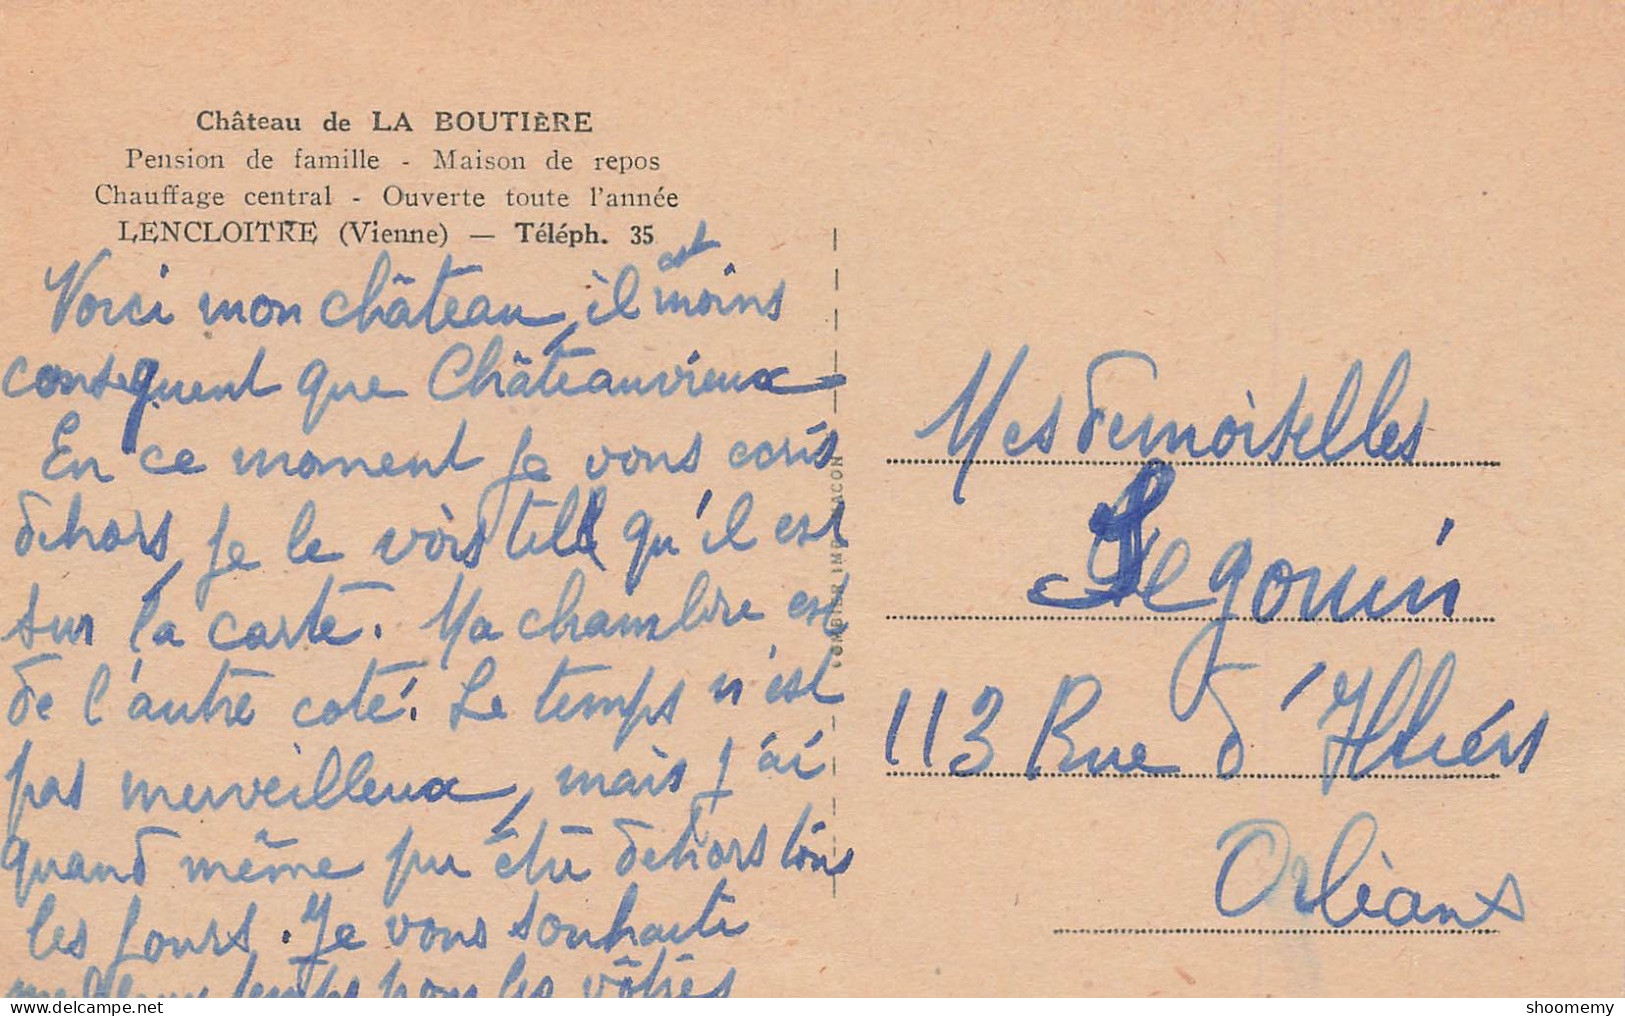 Château de LA BOUTIÈRE
Pension de famille - Maison de repos
Chauffage central - Ouverte toute l'année
LENCLOITRE (Vienne) — Téléph. 35
Voici mon château, il est moins
consequent que Châteauvieux
En ce moment je vous ecris
dehors, je le vois tel qu'il est
sur la carte. Ma chambre est
de l'autre coté. Le temps n'est
pas merveilleux, mais j'ai
quand même pu être dehors tous
les jours. Je vous souhaite
meilleur temps pour les vôtres
COMBIER IMP. MACON
Mesdemoiselles
Segouin
113 Rue d'Illiers
Orléans
delcampe.net
shoomemy